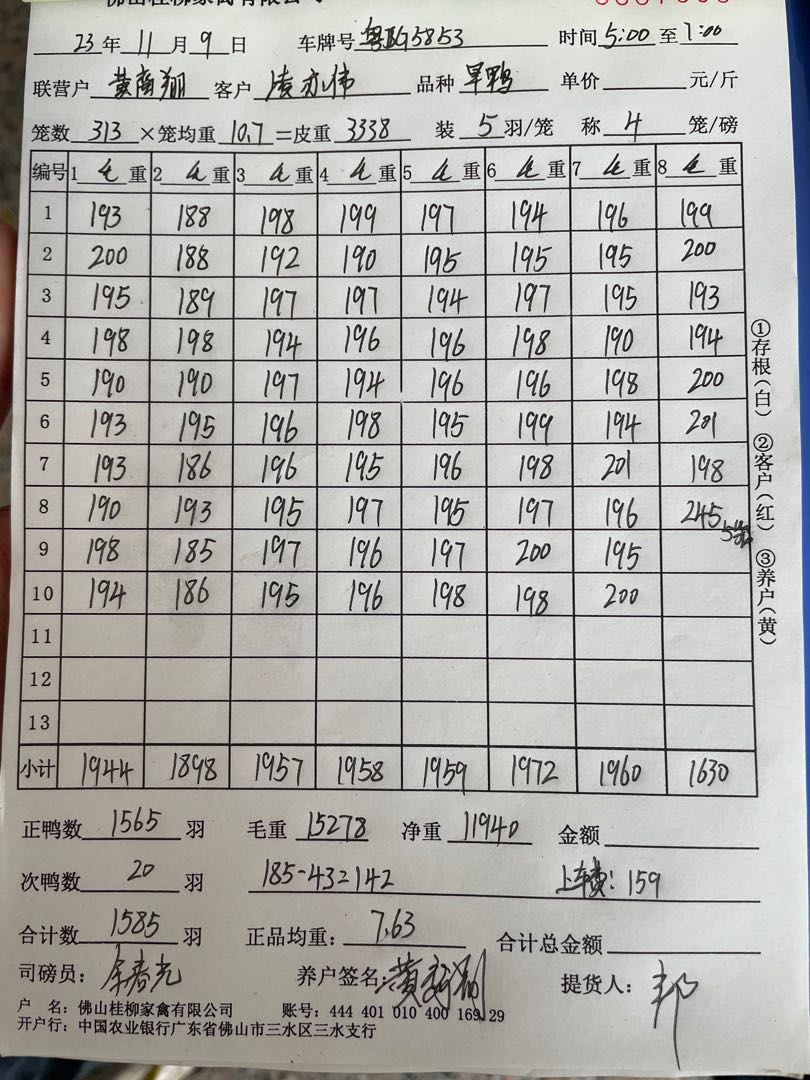 佛山桂柳家禽有限公司
23 年 11 月 9 日 车牌号 粤BG5853 时间 5:00 至 7:00
联营户 黄商翔 客户 凌亦伟 品种 旱鸭 单价 元/斤
笼数 313 ×笼均重 10.7 =皮重 3338 装 5 羽/笼 称 4 笼/磅
编号 1 毛 重 2 毛 重 3 毛 重 4 毛 重 5 毛 重 6 毛 重 7 毛 重 8 毛 重
1 193 188 198 199 197 194 196 199
2 200 188 192 190 195 195 195 200
3 195 189 197 197 194 197 195 193
4 198 198 194 196 196 198 190 194
5 190 190 197 194 196 196 198 200
6 193 195 196 198 195 199 194 201
7 193 186 196 195 196 198 201 198
8 190 193 195 197 195 197 196 245 5笼
9 198 185 197 196 197 200 195
10 194 186 195 196 198 198 200
11
12
13
小计 1944 1898 1957 1958 1959 1972 1960 1630
正鸭数 1565 羽 毛重 15278 净重 11940 金额
次鸭数 20 羽 185-43=142 上车费: 159
合计数 1585 羽 正品均重: 7.63 合计总金额
司磅员: 养户签名: 提货人: 邦
户 名: 佛山桂柳家禽有限公司 账号: 444 401 010 400 169 29
开户行: 中国农业银行广东省佛山市三水区三水支行
①存根(白) ②客户(红) ③养户(黄)